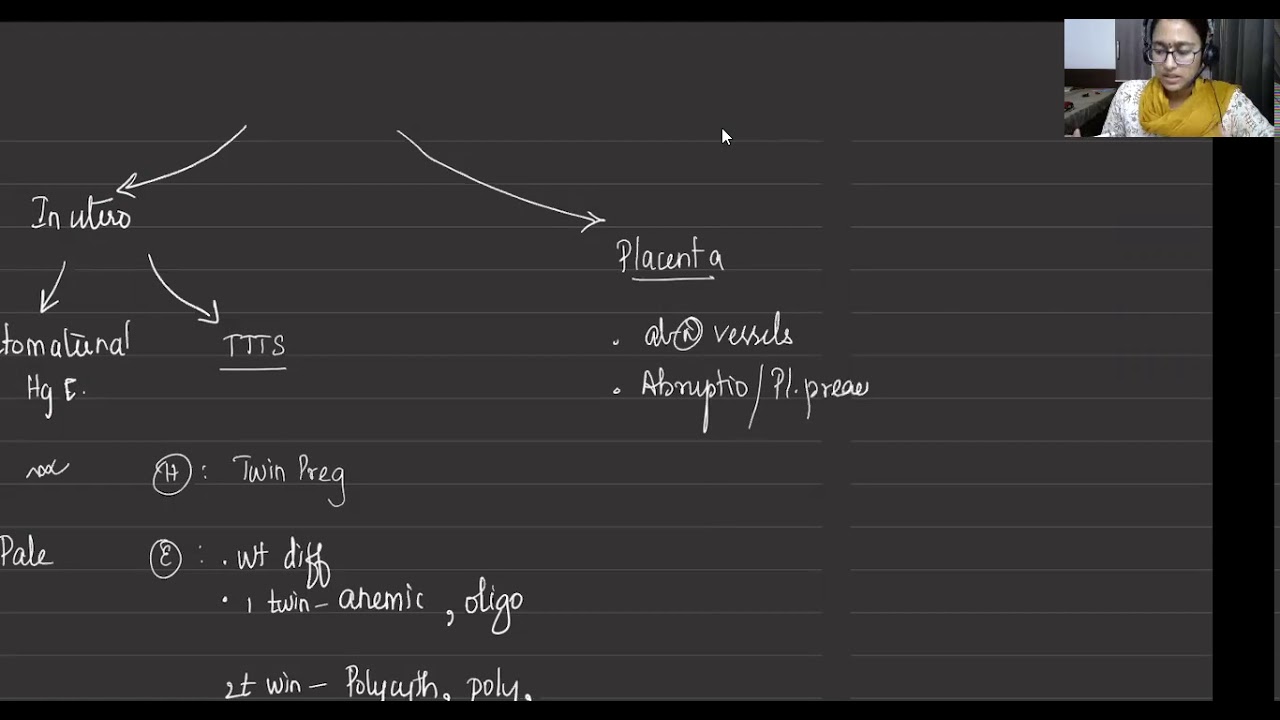 In utero
Placenta
tomaternal
Hg E.
TTTS
. abⓝ vessels
. Abruptio / Pl. preae
Ⓗ : Twin Preg
Pale
Ⓔ : . wt diff
. 1 twin - anemic, oligo
2t win - Polycyth, poly,